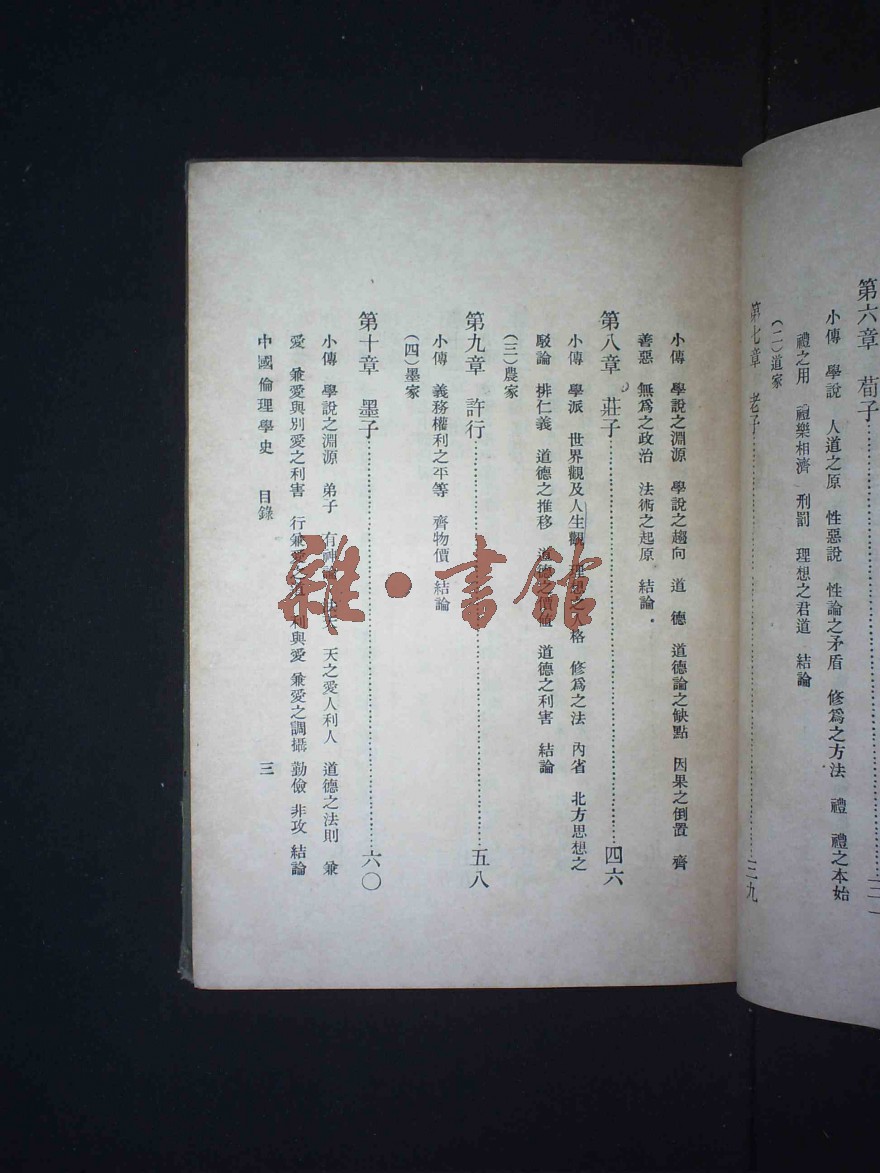 第六章 荀子
小傳 學說 人道之原 性惡說 性論之矛盾 修爲之方法 禮 禮之本始
禮之用 禮樂相濟 刑罰 理想之君道 結論
(二)道家
第七章 老子…三九
小傳 學說之淵源 學說之趨向 道 德 道德論之缺點 因果之倒置 齊
善惡 無爲之政治 法術之起原 結論
第八章 莊子…四六
小傳 學派 世界觀及人生觀 理想之人格 修爲之法 內省 北方思想之
駁論 排仁義 道德之推移 道德之價値 道德之利害 結論
(三)農家
第九章 許行…五八
小傳 義務權利之平等 齊物價 結論
(四)墨家
第十章 墨子…六〇
小傳 學說之淵源 弟子 有神論 法天 天之愛人利人 道德之法則 兼
愛 兼愛與別愛之利害 行兼愛之道 利與愛 兼愛之調攝 勤儉 非攻 結論
中國倫理學史 目錄 三
雜·書館